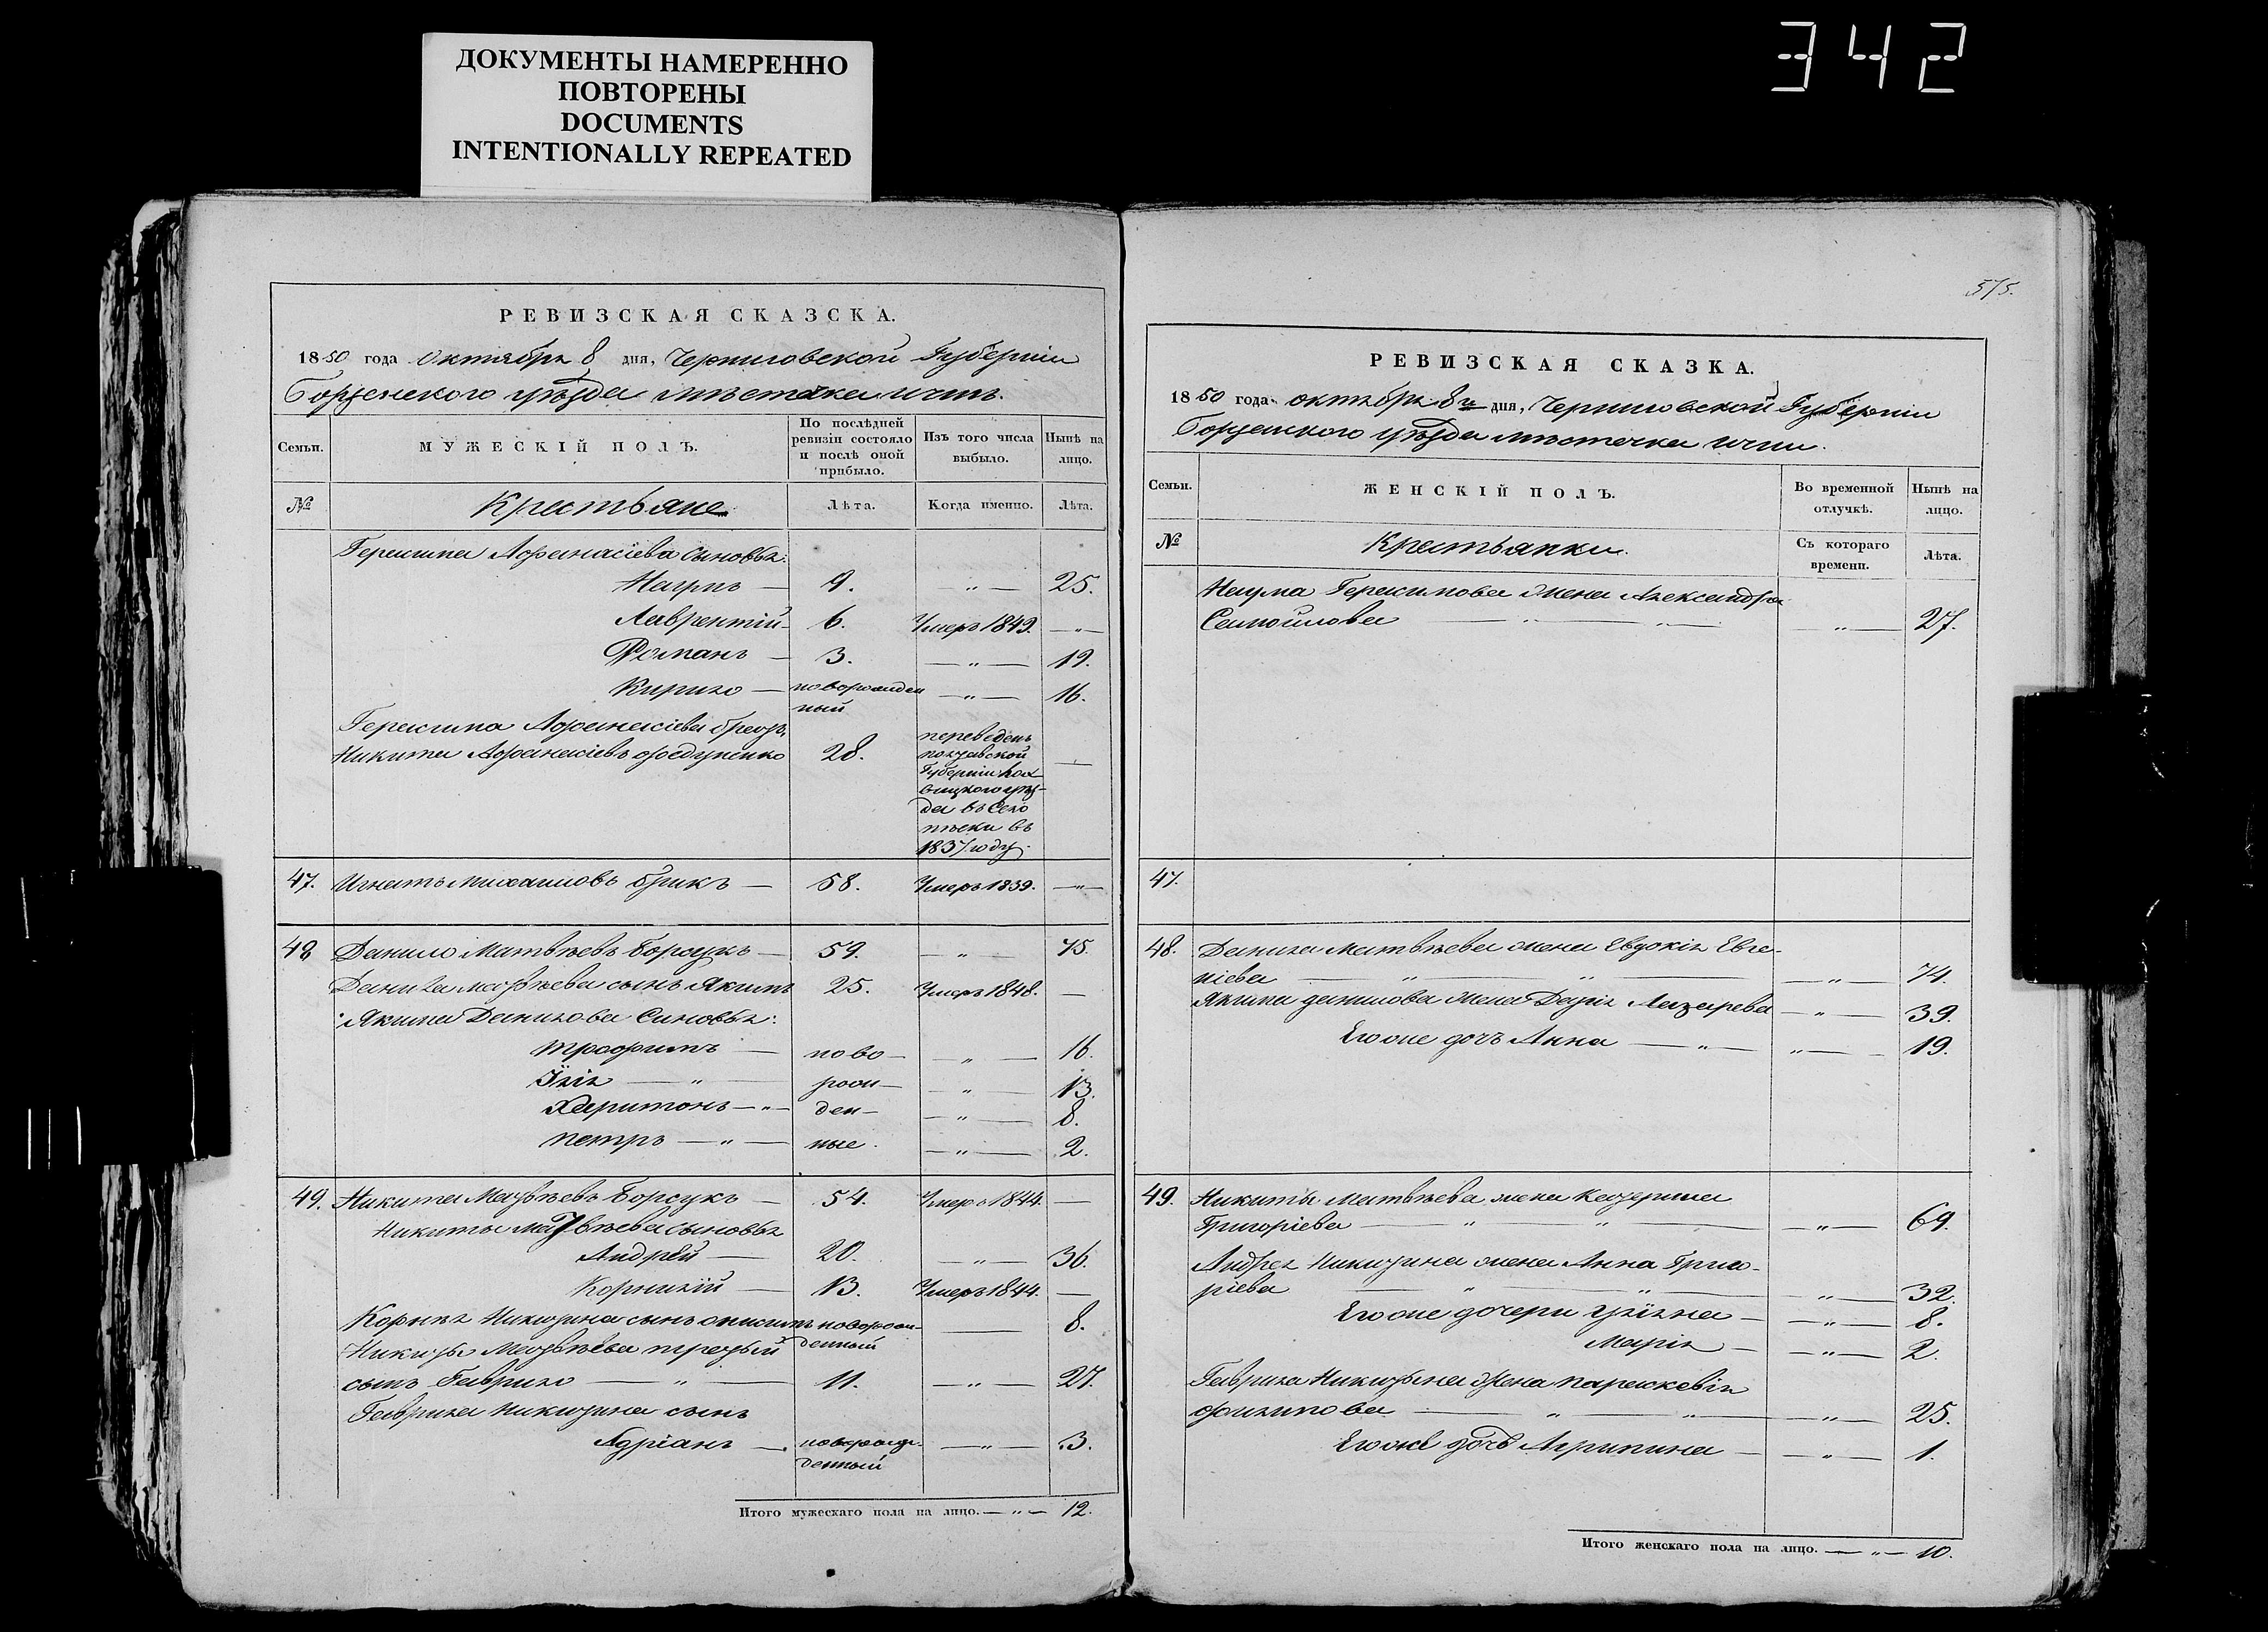 342
ДОКУМЕНТЫ НАМЕРЕННО
ПОВТОРЕНЫ
DOCUMENTS
INTENTIONALLY REPEATED
РЕВИЗСКАЯ СКАЗСКА.
1850 года Октября 8 дня, Черниговской Губерніи
Борзенского уѣзда мѣстечка Ични.
Семьи.
МУЖЕСКІЙ ПОЛЪ.
По послѣдней
ревизіи состояло
и послѣ оной
прибыло.
Изъ того числа
выбыло.
Нынѣ на
лицо.
№
Крестьяне
Лѣта.
Когда именно.
Лѣта.
Герасима Афанасіева сыновья:
Наумъ — 9. — „ — 25.
Лаврентій — 6. Умеръ 1849. — „ —
Романъ — 3. — „ — 19.
Кирило — новорожден — „ — 16.
ный
Герасима Афанасіева братъ
Никита Афанасіевъ 28. —
переведенъ
полтавской
Губерніи
уѣз-
да въ Село
въ
1837 году.
47. Игнатъ Михаиловъ Брикъ — 58. Умеръ 1839. — „ —
48 Данило Матвѣевъ Борсукъ — 59. — „ — 75.
Данила Матвѣева сынъ Якимъ 25. Умеръ 1848. —
Якима Данилова Синовья:
Трофимъ — ново — — „ — 16.
Ілія — „ — рож — — „ — 13.
Харитонъ — „ — ден — — „ — 8.
петръ — „ — ные. — „ — 2.
49. Никита Матвѣевъ Борсукъ — 54. Умеръ 1844. —
Никиты Матвѣева сыновья
Андрей — 20. — „ — 36.
Корнилій — 13. Умеръ 1844. —
Никитина сынъ новорож- — 8.
денный
Никиты Матвѣева третый
сынъ Гаврило — „ — 11. — „ — 27.
Гаврила Никитина сынъ
Адріанъ — новорож- — „ — 3.
денный
Итого мужескаго пола на лицо. — „ — 12.
575.
РЕВИЗСКАЯ СКАЗКА.
1850 года октября 8го дня, Черниговской Губерніи
Борзенского уѣзда мѣстечка Ични.
Семьи.
ЖЕНСКІЙ ПОЛЪ.
Во временной
отлучкѣ.
Нынѣ на
лицо.
№
Крестьянки.
Съ котораго
времени.
Лѣта.
Наума Герасимова жена Александра
Самойлова — „ — „ — — „ — 27.
47.
48. Данила Матвѣева жена Евдокія Евге-
ніева — „ — „ — — „ — 74.
Якима данилова жена Дарія Лазарева — „ — 39.
Его же дочъ Анна — „ — „ — 19.
49. Никиты Матвѣева жена Катерина
Григоріева — „ — „ — — „ — 69.
Андрея Никитина жена Анна Григо-
ріева — „ — „ — — „ — 32.
Его же дочери Уліяна — — „ — 8.
Марія — — „ — 2.
Гаврила Никитина жена параскевія
филипова — „ — „ — — „ — 25.
Его же дочъ Агрипина — — „ — 1.
Итого женскаго пола на лицо. — „ — 10.